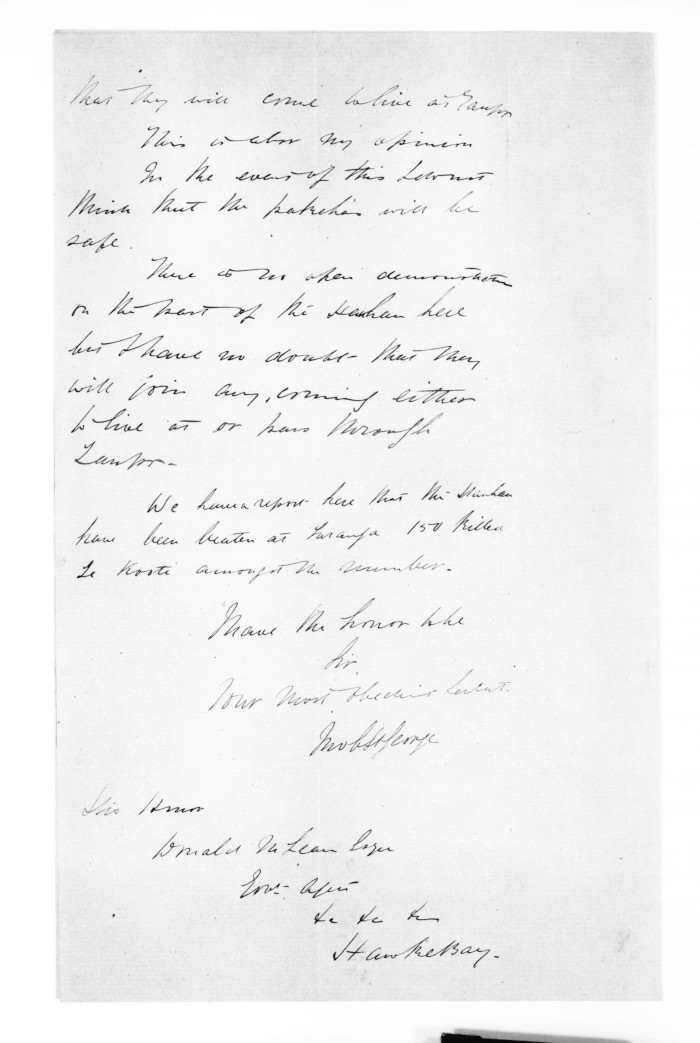 that they will come to live at Taupo
This is also my opinion
In the event of this I do not
think that the pakehas will be
safe.
There is no open demonstration
on the part of the Hauhau here
but I have no doubt that they
will join any, coming either
to live at or pass through
Taupo -
We have a report here that the Hauhau
have been beaten at Turanga 150 Killed
Te Kooti amongst the number -
I have the honor to be
Sir
Your Most Obedient Servt.
Jno C StGeorge
His Honor
Donald McLean Esqre
Govt. Agent
&c &c &c
Hawke Bay -